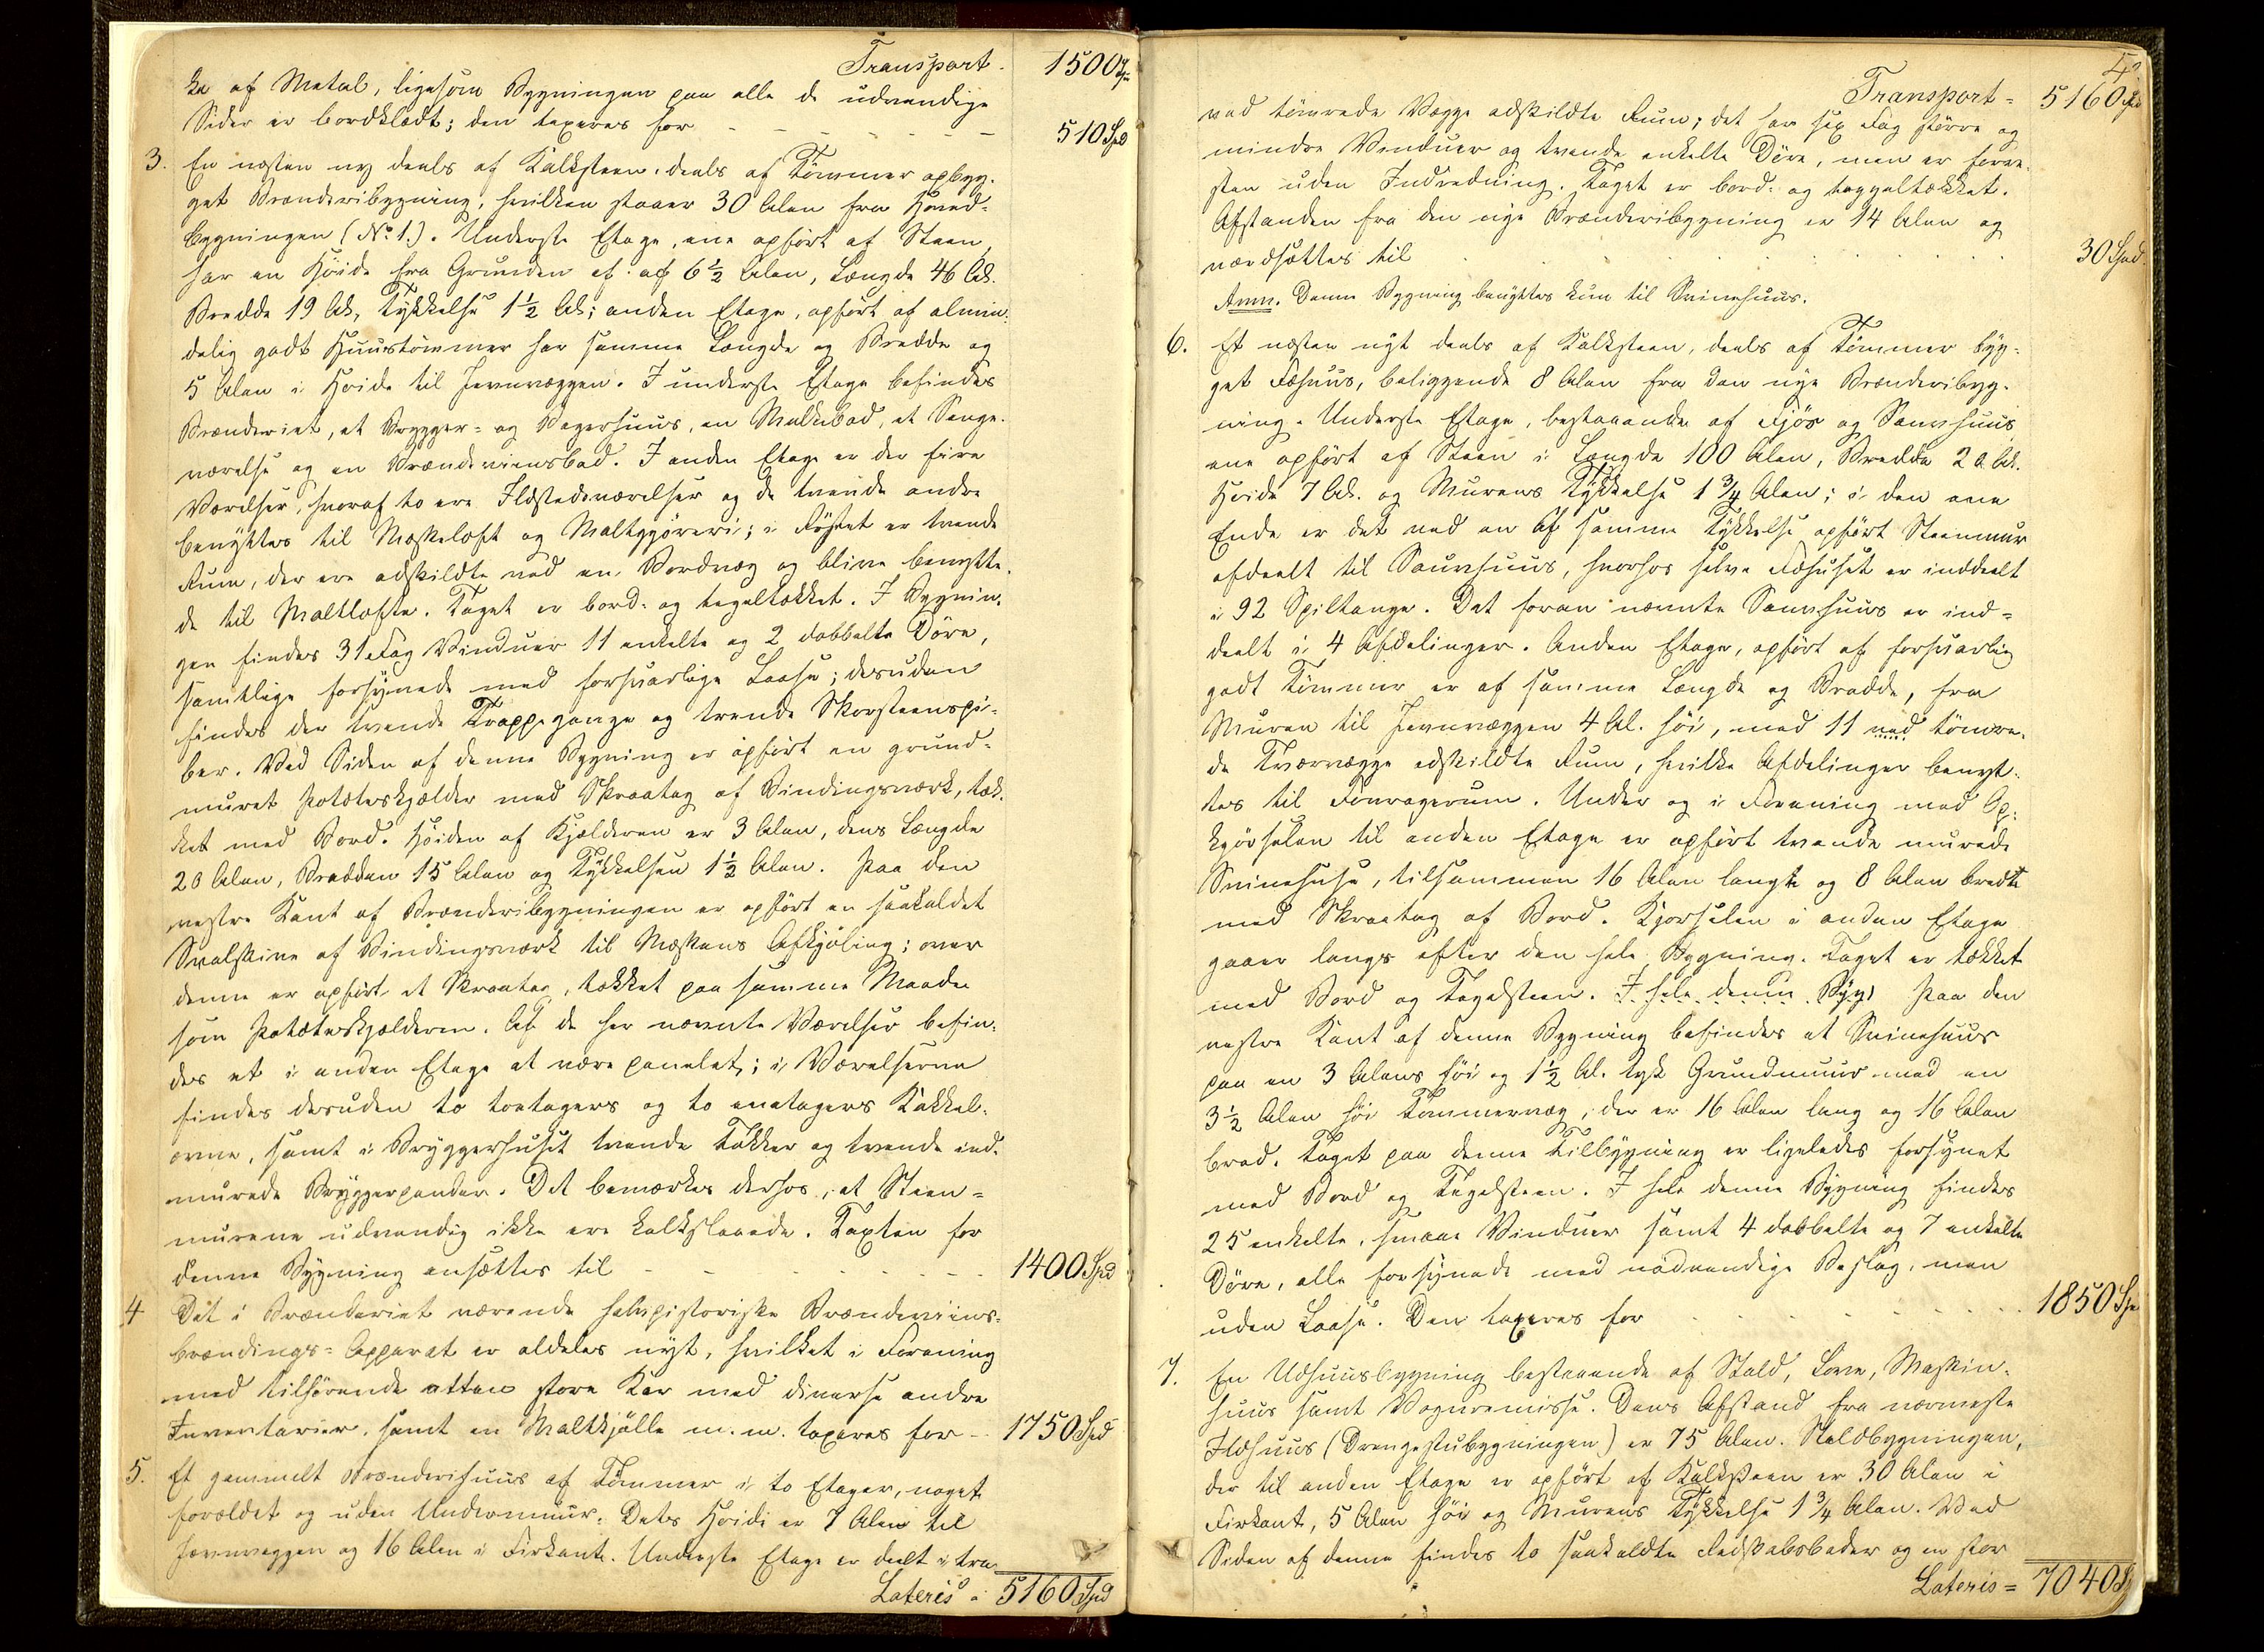 Transport. 1500 Spd
ke af Metal, ligesom Bygningen paa alle de udvendige
Sider er bordklædt; den taxeres for - - - - - - 510 Spd
3. En næsten ny deels af Kalksteen, deels af Tømmer opbyg-
get Brænderibygning, hvilken staaer 30 Alen fra Hoved-
bygningen (No 1.). Underste Etage, ene opført af Steen,
har en Høide fra Grunden af: af 6 1/2 Alen, Længde 46 Al.
Bredde 19 Al, Tykkelse 1 1/2 Al; anden Etage, opført af almin-
delig godt Huustømmer har samme Længde og Bredde og
5 Alen i Høide til Jevnvæggen. I underste Etage befindes
Brænderiet, et Brygger- og Bagerhuus, en Melkebod, et Senge-
værelse og en Brændeviinsbod. I anden Etage er der fire
Værelser, hvoraf to ere Ildstedsværelser og de tvende andre
benyttes til Mæskeloft og Maltgjøreri; i Røstet er tvende
Rum, der ere adskildte ved en Bordvæg og blive benytte-
de til Maltlofte. Taget er bord- og tegeltækket. I Bygnin-
gen findes 31 Fag Vinduer 11 enkelte og 2 dobbelte Døre,
samtlige forsynede med forsvarlige Laase; desuden
findes der tvende Trappegange og trende Skorsteenspi-
ber. Ved Siden af denne Bygning er opført en grund-
muret Poteteskjælder med Skraatag af Bindingsværk, tæk-
ket med Bord. Høiden af Kjælderen er 3 Alen, dens Længde
20 Alen, Bredden 15 Alen og Tykkelsen 1 1/2 Alen. Paa den
vestre Kant af Brænderibygningen er opført en saakaldet
Svalskive af Bindingsværk til Mæskens Afkjøling; over
denne er opført et Skraatag, tækket paa samme Maade
som Poteteskjælderen. Af de her nævnte Værelser befin-
des et i anden Etage at være panelet; i Værelserne
findes desuden to toetagers og to eenetagers Kakkel-
ovne, samt i Bryggerhuset tvende Takker og tvende ind-
murede Bryggerpander. Det bemærkes derhos, at Steen-
murene udvendig ikke ere kalkslaaede. Taxten for
denne Bygning ansættes til - - - - - - 1400 Spd
4 Det i Brænderiet værende halvpistoriske Brændeviins-
brændings-Apparat er aldeles nyt, hvilket i Forening
med tilhørende atten store Kar med diverse andre
Inventarier, samt en Maltkjølle m. m. taxeres for - 1750 Spd
5. Et gammelt Brænderihuus af Tømmer i to Etager, noget
forældet og uden Undermuur. Dets Høide er 7 Alen til
Jevnvæggen og 16 Alen i Firkant. Underste Etage er deelt i tre
Lateris = 5160 Spd
4
Transport = 5160 Spd
ved tømrede Vægge adskildte Rum; det har sex Fag større og
mindre Vinduer og tvende enkelte Døre, men er forre-
sten uden Indredning. Taget er bord- og teggeltækket.
Afstanden fra den nye Brænderibygning er 14 Alen og
værdsættes til . . . . . . 30 Spd.
Anm. Denne Bygning benyttes kun til Sviinehuus.
6. Et næsten nyt deels af Kalksteen, deels af Tømmer byg-
get Fæhuus, beliggende 8 Alen fra den nye Brænderibyg-
ning. Underste Etage, bestaaende af Fjøs og Sauehuus
ene opført af Steen i Længde 100 Alen, Bredde 20 Al.
Høide 7 Al. og Murens Tykkelse 1 3/4 Alen; i den ene
Ende er det ved en af samme Tykkelse opført Steenmuur
afdeelt til Sauehuus, hvorhos selve Fæhuset er inddeelt
i 92 Spiltauge. Det foran nævnte Sauehuus er ind-
deelt i 4 Afdelinger. Anden Etage, opført af forsvarlig
godt Tømmer er af samme Længde og Bredde, fra
Muren til Jevnvæggen 4 Al. høi, med 11 ved tømre-
de Tværvægge adskildte Rum, hvilke Afdelinger benyt-
tes til Fouragerum. Under og i Forening med Op-
kjørselen til anden Etage er opført tvende murede
Sviinehuse, tilsammen 16 Alen langt og 8 Alen bredt
med Skraatag af Bord. Kjørselen i anden Etage
gaaer langs efter den hele Bygning. Taget er tækket
med Bord og Tegelsteen. I hele denne Byg Paa den
vestre Kant af denne Bygning befindes et Sviinehuus
paa en 3 Alens høi og 1 1/2 Al. tyk Grundmuur med en
3 1/2 Alen høi Tømmervæg, der er 16 Alen lang og 16 Alen
bred. Taget paa denne Tilbygning er ligeledes forsynet
med Bord og Tegelsteen. I hele denne Bygning findes
25 enkelte, smaae Vinduer samt 4 dobbelte og 7 enkelte
Døre, alle forsynede med nødvendige Beslag, men
uden Laase. Den taxeres for . . . . . . 1850 Spd
7. En Udhuusbygning bestaaende af Stald, Lave, Maskin-
huus samt Vognremisse. Dens Afstand fra nærmeste
Ildhuus (Drengestubygningen) er 75 Alen. Staldbygningen,
der til anden Etage er opført af Kalksteen er 30 Alen i
Firkant, 5 Alen høi og Murens Tykkelse 1 3/4 Alen. Ved
Siden af denne findes to saakaldte Redskabsboder og en stor
Lateris = 7040 S